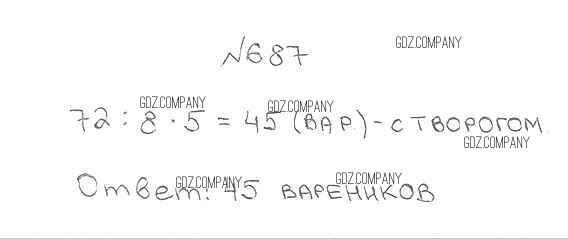 №687
GDZ.COMPANY
GDZ.COMPANY
GDZ.COMPANY
72 : 8 · 5 = 45 (ВАР.) - С ТВОРОГОМ.
GDZ.COMPANY
GDZ.COMPANY
GDZ.COMPANY
Ответ: 45 ВАРЕНИКОВ